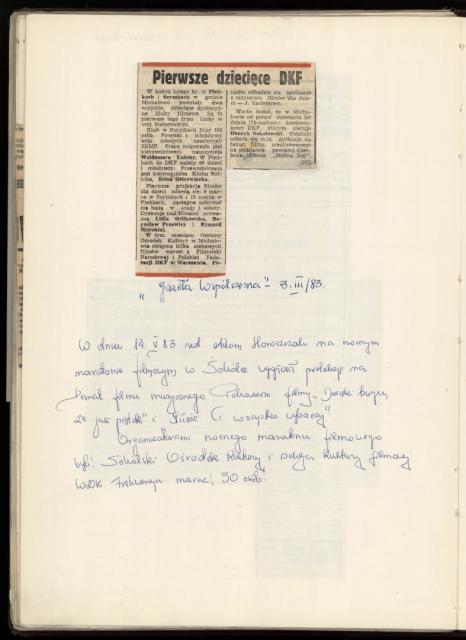 Pierwsze dziecięce DKF
W końcu lutego br. w Pień-
kach i Szymkach w gminie
Michałowo powstały dwa
wiejskie, dziecięce dyskusyj-
ne kluby filmowe. Są to
pierwsze tego typu kluby w
woj. białostockim.
Klub w Szymkach liczy 100
osób. Powstał z inicjatywy
koła młodych nauczycieli
ZSMP. Pracą rozpoczął pod
kierownictwem nauczyciela
Waldemara Łukszy. W Pień-
kach do DKF należy 60 dzieci
i młodzieży. Przewodniczącą
jest kierowniczka Klubu Rol-
nika, Irena Ostrowiecka.
Pierwsze projekcje filmów
dla dzieci odbędą się: 8 mar-
ca w Szymkach i 12 marca w
Pieńkach, następne odbywać
się będą w środy i soboty.
Dyskusje nad filmami prowa-
dzą Lidia Gritkowska, Bo-
gusław Prosowicz i Ryszard
Worobiej.
W tym miesiącu Gminny
Ośrodek Kultury w Michało-
wie otrzyma kilka ciekawych
filmów wprost z Filmoteki
Narodowej i Polskiej Fede-
racji DKF w Warszawie. Po-
nadto odbędzie się spotkanie
z reżyserem filmów dla dzie-
ci — J.
Warto dodać, że w Micha-
łowie od ponad dziesięciu lat
działa
DKF, którym kieruje
Henryk Sokołowski. Ostatnio
odbyła się m.in. dyskusja na
temat filmu, zrealizowanego
na podstawie powieści Cze-
sława Miłosza "Dolina Issy".
„Gazeta Współczesna" - 3.III/83.
W dniu 19 V 83 red Adam Horoszczak na nocnym
maratonie filmowym w Sokółce wygłosił prelekcję na
temat filmu muzycznego. Pokazano filmy „Dzięki Bogu,
że już piątek" i „Miłość Ci wszystko wybaczy"
Organizatorami nocnego maratonu filmowego
byli: Sokólski Ośrodek Kultury i kultury filmowej
WDK Frekwencja marna, 30 osób.